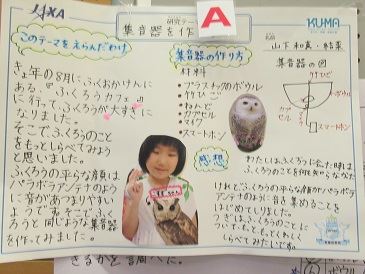 JAXA
研究テー
集音器を作
A
KUMA
このテーマをえらんだわけ
きょ年の8月にふくおかけんに
ある、『ふくろうカフェ』
に行って、ふくろうが大すきに
なりました。
そこで、ふくろうのこと
をもっとしらべてみよう
と思いました。
ふくろうの平らな顔は
パラボラアンテナのよう
に音があつまりやすい
ようです。そこで、ふくろ
うと同じような集音器
を作ってみました。
集音器の作り方
材料
・プラスチックのボウル
・竹ひご
・ねんど
・カプセル
・マイク
・スマートホン
集音器の図
ボウル
カプセル
マイク
スマートホン
感想
わたしはふくろうに会った時は
ふくろうのことを何も知らなかった
けれど、ふくろうの平らな顔がパラボラ
アンテナのように音を集めることを
はじめてしりました。
つぎはふくろうのことに
ついてもっともっとくわしく
しらべてみたいです。
きるかを調べた。